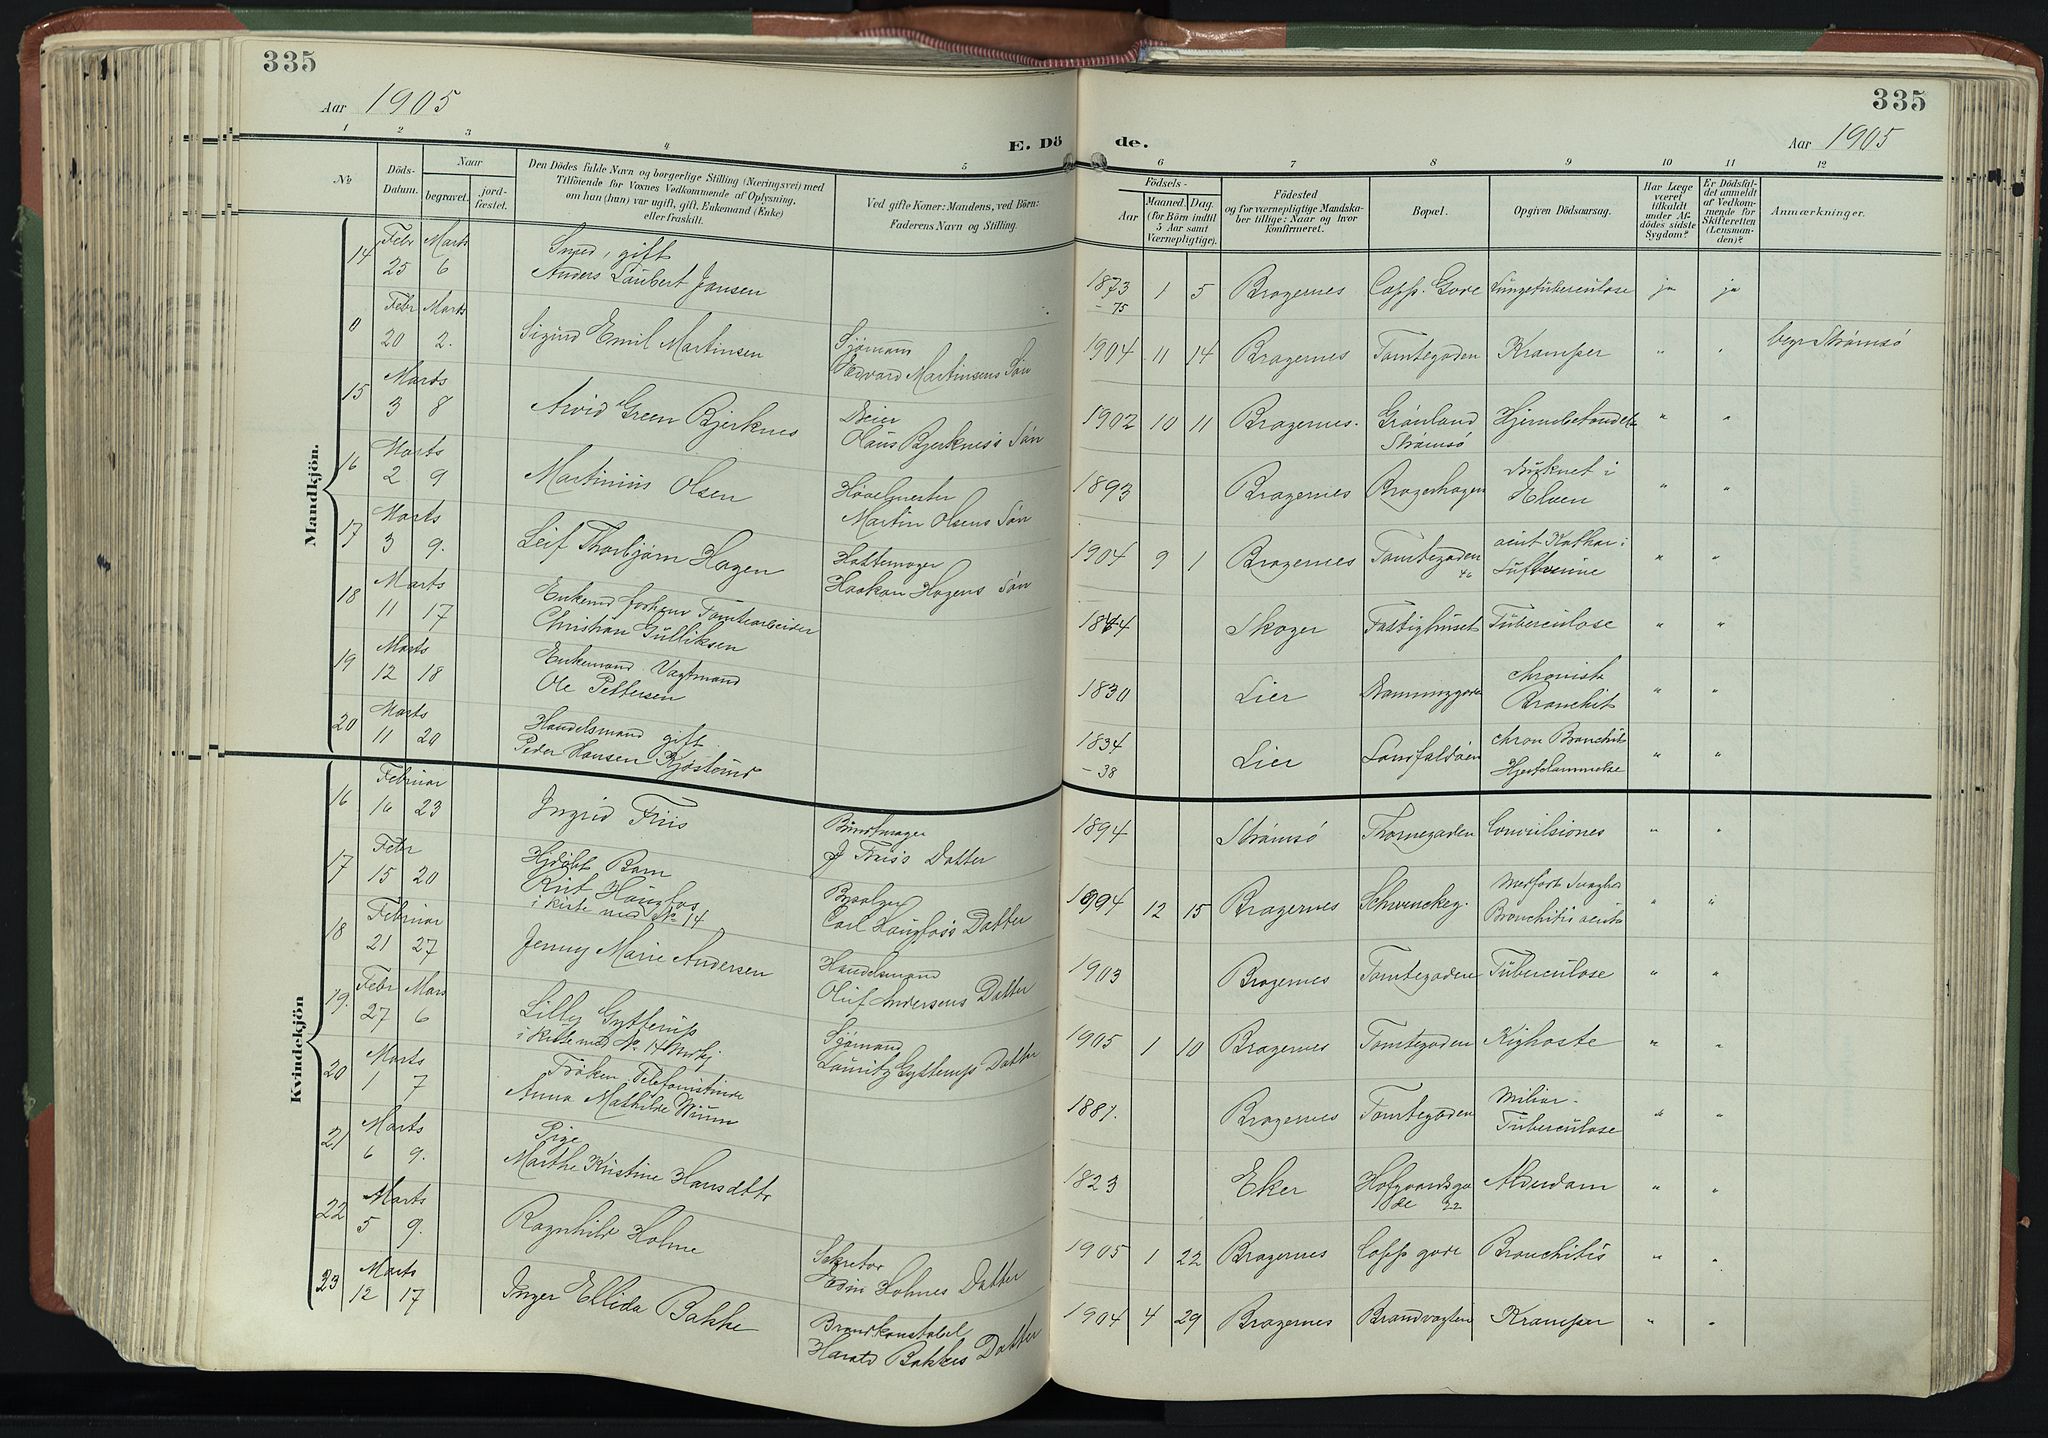 335
Aar 1905
E. Dö
1 2 3 4 5
№
Döds-
Datum.
Naar
begravet.
jord-
fæstet.
Den Dödes fulde Navn og borgerlige Stilling (Næringsvei) med
Tilföiende for Voxnes Vedkommende af Oplysning,
om han (hun) var ugift, gift, Enkemand (Enke)
eller fraskilt.
Ved gifte Koner: Mandens, ved Börn:
Faderens Navn og Stilling.
Mandkjön.
14 Febr 25 Marts 6 Smed, gift
Anders Laubert Jansen
0 Febr 20 Marts 2. Sigurd Emil Martinsen Sjømand
Edvard Martinsens Søn
15 Marts 3 8 Arvid Green Bjerknes Dreier
Olaus Bjerknes's Søn
16 Marts 2 9 Martinius Olsen Høvelmester
Martin Olsens Søn
17 Marts 3 9. Leif Thorbjørn Hagen Hattemager
Haakon Hagens Søn
18 Marts 11 17 Enkemd forhenv Tomtearbeider
Christian Gulliksen
19 Marts 12 18 Enkemand Vagtmand
Ole Pettersen
20 Marts 11 20 Handelsmand gift
Peder Hansen
Kvindekjön
16 Februar 16 23 Ingrid Friis Buntmager
J Friis's Datter
17 Febr 15 20 Hjdøbt Barn
Rut Haugfos
i kiste med No 14 Bypolges
Carl Haugfos's Datter
18 Februar 21 27 Jenny Marie Andersen Handelsmand
Oluf Andersens Datter
19. Febr 27 Mars 6 Lilly Gytterup
i kiste med No 14 Mnkj Sjømand
Lauritz Gytterups Datter
20 Marts 1 7 Frøken, Telefonistinde
Anna Mathilde Wium
21 Marts 6 9. Pige
Marthe Kristine Hansdttr
22 Marts 5 9. Ragnhild Holme Sekretær
Holmes Datter
23 Marts 12 17 Inger Ellida Bakke Brandkonstabel
Harald Bakkes Datter
335
de.
Aar 1905
6 7 8 9 10 11 12
Födsels-
Aar
Maaned. Dag.
(for Börn indtil
5 Aar samt
Værnepligtige).
Födested
og for værnepligtige Mandska-
ber tillige: Naar og hvor
Konfirmeret.
Bopæl.
Opgiven Dödsaarsag.
Har Læge
været
tilkaldt
under Af-
dödes sidste
Sygdom?
Er Dödsfal-
det anmeldt
af Vedkom-
mende for
Skifteretten
(Lensman-
den)?
Anmærkninger.
1873 1 5 Bragernes Capp. Gade Lungetuberculose ja ja
-75
1904 11 14 Bragernes Tomtegaden Kramper " " begr Strømsø
1902 10 11 Bragernes. Grønland
Strømsø Hjernebetændelse " "
1893 Bragernes Bragerhagen Druknet i
Elven " "
1904 9 1 Bragernes Tomtegaden
46 acut Kathar i
Luftveiene " "
1844 Skoger Fattighuset Tuberculose " "
1830 Lier Dronninggaden chronisk
Bronchit " "
1834
-38 Lier Landfaldøen chron Bronchit
Hjertelammelse " "
1894 Strømsø Thornegaden Convulsiones " "
1904 12 15 Bragernes Schwenckeg. Medfødt Svaghed
Bronchitis acuta " "
1903 Bragernes Tomtegaden Tuberculose " "
1905 1 10 Bragernes Tomtegaden Kighoste " "
1881. Bragernes Tomtegaden Miliar-
Tuberculose " "
1823 Eker Hofgaardsga
de 22 Alderdom " "
1905 1 22 Bragernes Capps gade Bronchitis " "
1904 4 29 Bragernes Brandvagten Kramper " "